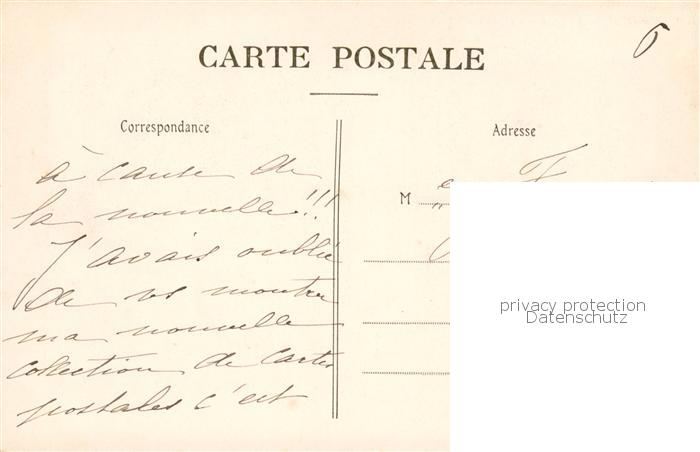 6
CARTE POSTALE
Correspondance
à cause de
la nouvelle!!!
J'avais oublié
de vs montrer
ma nouvelle
collection de cartes
postales c'est
Adresse
M
privacy protection
Datenschutz